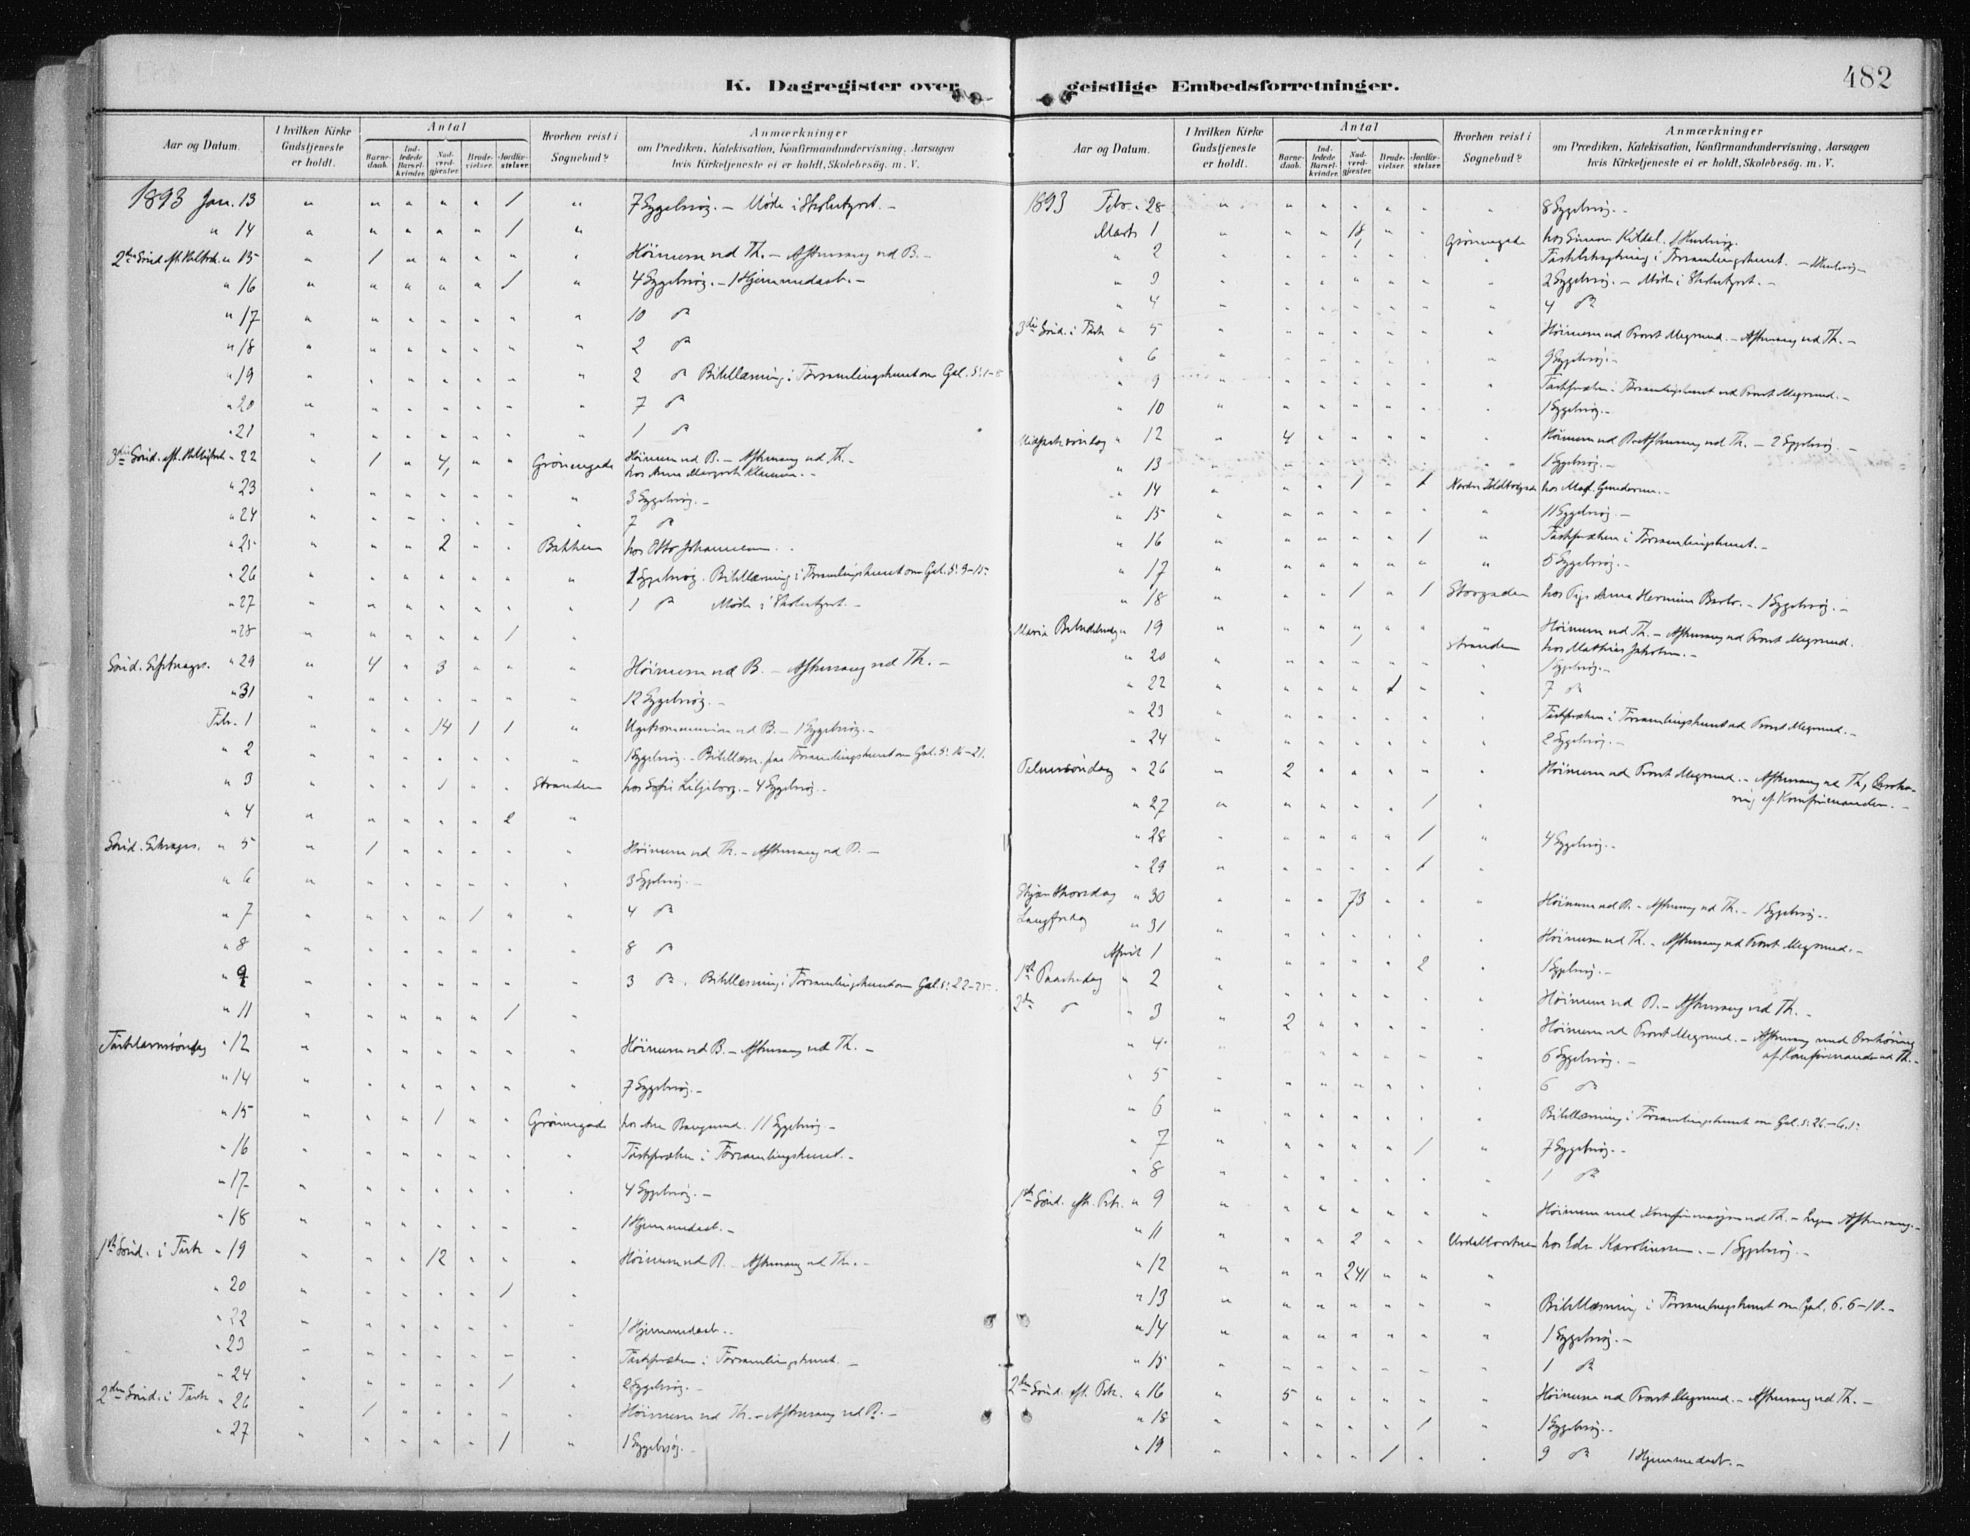 K. Dagregister over geistlige Embedsforretninger.
482
Aar og Datum.
I hvilken Kirke Gudstjeneste er holdt.
Antal
Barnedaab.
Indledede Barselkvinder.
Nadverdgjæster.
Brudevielser.
Jordfæstelser.
Hvorhen reist i Sognebud?
Anmærkninger
om Prædiken, Katekisation, Konfirmandundervisning, Aarsagen
hvis Kirketjeneste ei er holdt, Skolebesøg. m. V.
1893 Jan. 13 " " " " " 1 " 7 Sygebesøg. – Møde i Skolestyret. –
" 14 " " " " " 1 "
" 15 " 1 " " " " " Høimesse ved Th. – Aftensang ved B. –
" 16 " " " " " 1 " 4 Sygebesøg. – 1 Hjemmedaab. –
" 17 " " " " " " " 10 do
" 18 " " " " " " " 2 do
" 19 " " " " " " " 2 do Bibellæsning i Forsamlingshuset om Gal. 5: 1–8
" 20 " " " " " " " 7 do
" 21 " " " " " " " 1 do
" 22 " 1 " 4 " " Grønnegade Høimesse ved B. – Aftensang ved Th. –
" 23 " " " " " " " 3 Sygebesøg. –
" 24 " " " " " " " 7 do
" 25 " " " 2 " " Bakken hos Otto Johannesen.
" 26 " " " " " " " Sygebesøg. Bibellæsning i Forsamlingshuset om Gal. 5: 9–15
" 27 " " " " " " " 1 do Møde i Skolestyret. –
" 28 " " " " " 1 "
" 29 " 4 " 3 " " " Høimesse ved B. – Aftensang ved Th. –
" 31 " " " " " " " 12 Sygebesøg. –
Febr. 1 " " " 14 1 1 " Ugekommunion ved B. – 1 Sygebesøg. –
" 2 " " " " " " " 1 Sygebesøg. – Bibellæsn. paa Forsamlingshuset om Gal. 5: 16–21.
" 3 " " " 1 " " Stranden hos Sofie Liljeborg. – 4 Sygebesøg. –
" 4 " " " " " 2 "
" 5 " 1 " " " " " Høimesse ved Th. – Aftensang ved B. –
" 6 " " " " " " " 3 Sygebesøg. –
" 7 " " " " 1 " " 4 do
" 8 " " " " " " " 8 do
" 9 " " " " " " " 3 do. Bibellæsning i Forsamlingshuset om Gal. 5: 22–25.
" 11 " " " " " 1 "
Fastelavnssøndag " 12 " " " " " " " Høimesse ved B. – Aftensang ved Th. –
" 14 " " " " " " " 7 Sygebesøg. –
" 15 " " " 1 " " Grønnegade 11 Sygebesøg –
" 16 " " " " " " " Fastepræken i Forsamlingshuset. –
" 17 " " " " " " " 4 Sygebesøg. –
" 18 " " " " " " " 1 Hjemmedaab. –
1ste Sønd. i Faste " 19 " " " 12 " " " Høimesse ved B. – Aftensang ved Th. –
" 20 " " " " " 1 "
" 22 " " " " " " " 1 Hjemmedaab. –
" 23 " " " " " " " Fastepræken i Forsamlingshuset. –
" 24 " " " " " 1 " 2 Sygebesøg. –
2den Sønd. i Faste " 26 " 1 " " " " " Høimesse ved Th. – Aftensang ved B. –
" 27 " " " " " 1 " 1 Sygebesøg. –
Aar og Datum.
I hvilken Kirke Gudstjeneste er holdt.
Antal
Barnedaab.
Indledede Barselkvinder.
Nadverdgjæster.
Brudevielser.
Jordfæstelser.
Hvorhen reist i Sognebud?
Anmærkninger
om Prædiken, Katekisation, Konfirmandundervisning, Aarsagen
hvis Kirketjeneste ei er holdt, Skolebesøg. m. V.
1893 Febr. 28 " " " " " " " 8 Sygebesøg. –
Marts 1 " " " 18 " " Grønnegade hos Simon
" 2 i Forsamlingshuset. –
" 3 " " " " " " " 2 Sygebesøg. – Møde i Skolestyret. –
" 4 " " " " " " " 4 do
3die Sønd. i Faste " 5 " " " " " " " Høimesse ved Provst – Aftensang ved Th. –
" 6 " " " " " " " 9 Sygebesøg. –
" 9 " " " " " " " Fastepræken i Forsamlingshuset ved Provst
" 10 " " " " " " " 1 Sygebesøg. –
Midfastesøndag " 12 " 4 " " " " " Høimesse ved B. Aftensang ved Th. – 2 Sygebesøg. –
" 13 " " " " " " " 1 Sygebesøg. –
" 14 " " " 1 " 1 hos
" 15 " " " " " " " 11 Sygebesøg. –
" 16 " " " " " 1 " Fastepræken i Forsamlingshuset. –
" 17 " " " " " " " 5 Sygebesøg. –
" 18 " " " 1 " 1 Storgaden hos Pige Anna – 1 Sygebesøg. –
Maria Bebudelsesdag " 19 " " " " " " " Høimesse ved Th. – Aftensang ved Provst
1 Stranden hos Mathias Jakobsen. –
" 20 " " " " " " " 1 Sygebesøg. –
" 22 " " " " 1 " " 7 do
" 23 " " " " " " " Fastepræken i Forsamlingshuset ved Provst
" 24 " " " " " " " 2 Sygebesøg. –
Palmesøndag " 26 " 2 " " " " " Høimesse ved Provst – Aftensang ved Th, Overhøring af Konfirmander. –
" 27 " " " " " 1 "
" 28 " " " " " 1 " 4 Sygebesøg. –
" 29 " " " " " 1 "
Skjærthorsdag " 30 " " " 73 " " " Høimesse ved B. – Aftensang ved Th. – 1 Sygebesøg. –
Langfredag " 31 " " " " " " " Høimesse ved Th. – Aftensang ved Provst
April 1 " " " " " 2 " 1 Sygebesøg. –
1ste Paaskedag " 2 " " " " " " " Høimesse ved B. – Aftensang ved Th. –
2den do " 3 " 2 " " " " " Høimesse ved Provst – Aftensang med Overhøring af Konfirmander ved Th. –
" 4 " " " " " " " 6 Sygebesøg. –
" 5 " " " " " " " 6 do
" 6 " " " " " " " Bibellæsning i Forsamlingshuset om Gal. 5: 26–6:5
" 7 " " " " " 1 " 7 Sygebesøg. –
" 8 " " " " " " " 1 do
1ste Sønd. eft. Psk. " 9 " " " " " " " Høimesse med Konfirmasjon ved Th. – Ingen Aftensang. –
" 11 " " " 2 " " hos Edv. Karolinussen. – 1 Sygebesøg. –
" 12 " " " 241 " " "
" 13 " " " " " " " Bibellæsning i Forsamlingshuset om Gal. 6. 6–10. –
" 14 " " " " " " " 1 Sygebesøg. –
" 15 " " " " " " " 1 do
2den Sønd. eft. Psk. " 16 " 5 " " " " " Høimesse ved Provst – Aftensang ved Th. –
" 18 " " " " " 1 " 1 Sygebesøg. –
" 19 " " " " 1 " " 9 do 1 Hjemmedaab. –